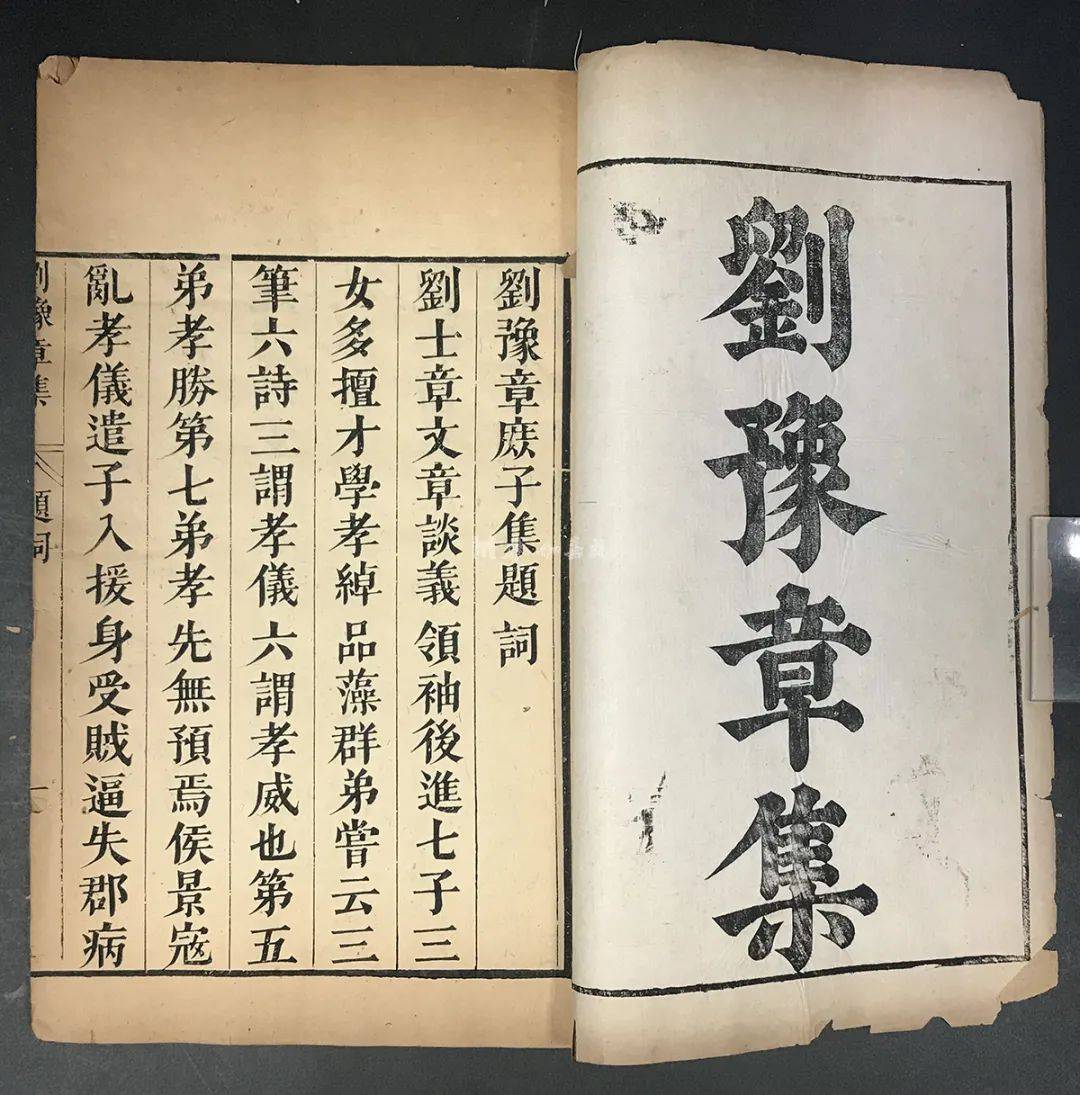 劉豫章集
劉豫章庶子集題詞
劉士章文章談義領袖後進七子三
女多擅才學孝綽品藻群弟嘗云三
筆六詩三謂孝儀六謂孝威也第五
弟孝勝第七弟孝先無預焉侯景寇
亂孝儀遣子入援身受賊逼失郡病
劉豫章集 題詞 一